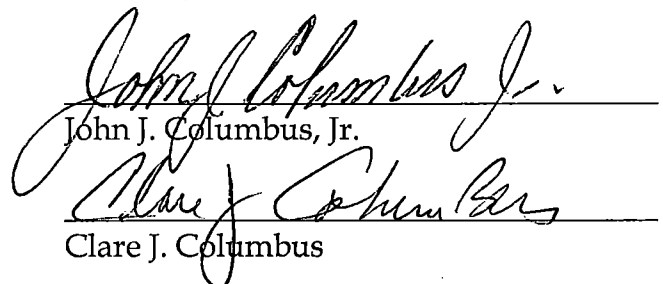 John J Columbus Jr.
John J. Columbus, Jr.
Clare J Columbus
Clare J. Columbus